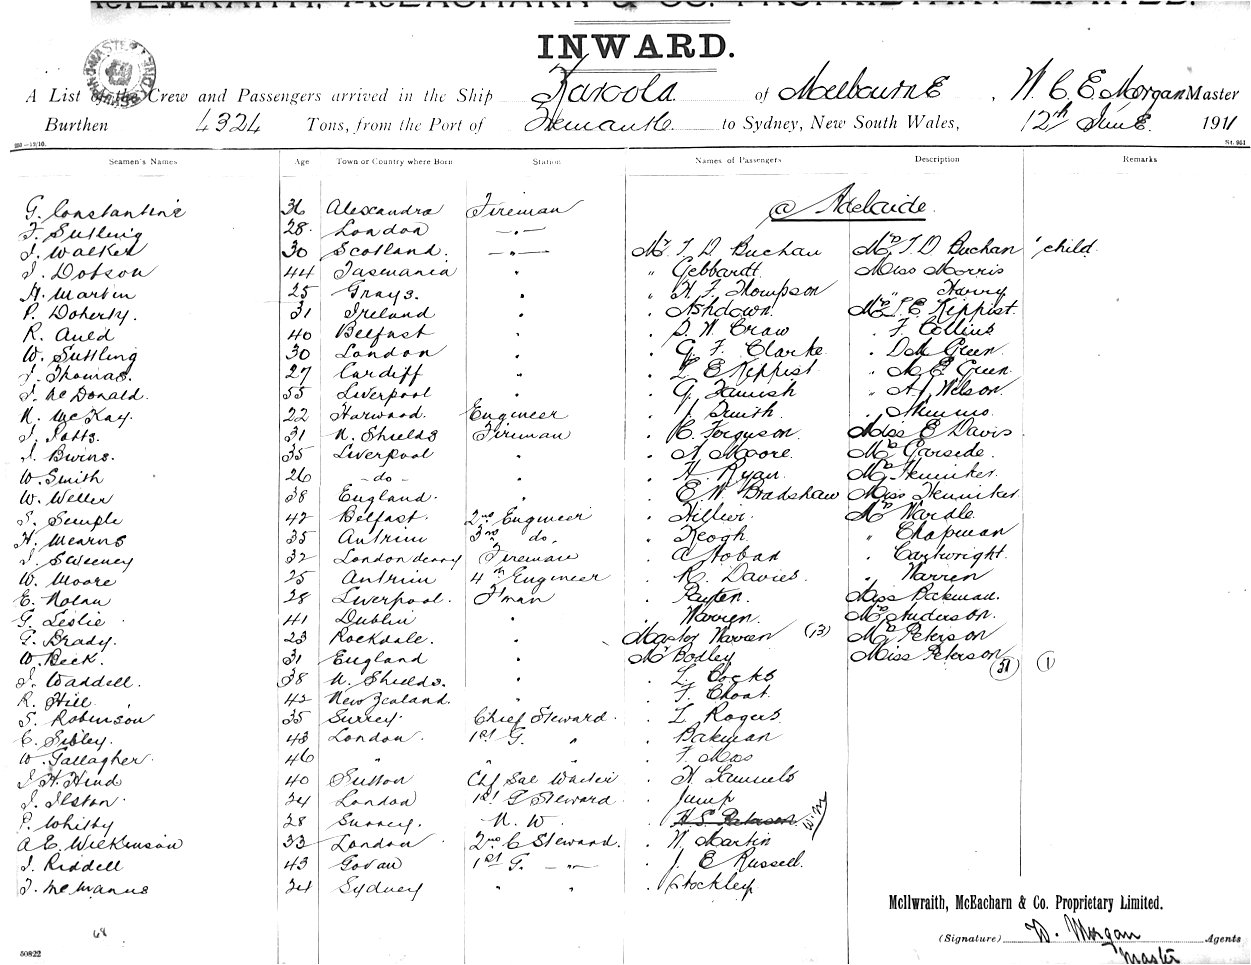 McILWRAITH, McEACHARN & CO. PROPRIETARY LIMITED.
INWARD.
A List of the Crew and Passengers arrived in the Ship Karoola of Melbourne, W. C. E. Morgan Master
Burthen 4324 Tons, from the Port of Fremantle to Sydney, New South Wales, 12th June 1911
St. 951
Seamen's Names Age Town or Country where Born Station Names of Passengers Description Remarks
G. Constantine 36 Alexandra Fireman @ Adelaide
F. Sutling 28 London -"-
J. Walker 30 Scotland -"- Mr. T. D. Buchan Mrs T. D Buchan 1 child
J. Dobson 44 Tasmania " " Gebhardt Miss Morris
H. Martin 25 Grays. " " H. F. Thompson " Harry
P. Doherty. 31 Ireland " " Ashdown Mrs L. E. Kippist
R. Auld 40 Belfast " " D. W. Craw " F Collins
W. Suttling 30 London " " G F. Clarke " Green
J. Thomas. 27 Cardiff " " L E Kippist " Green
J. McDonald. 55 Liverpool " " G. Famish " A J Nelson
N. McKay. 22 Harwood. Engineer " J. Smith " Munmo
J. Potts. 31 N. Shields Fireman " C. Ferguson Miss E Davis
J. Bwins. 35 Liverpool " " A Moore Mrs Garside.
W. Smith 26 -do- " " H. Ryan Mrs Henniker
W. Weller 38 England. " " E. W. Bradshaw Miss Henniker
S. Semple 42 Belfast. 2nd Engineer " Hillier. Mrs Wardle
H. Mearns 35 Antrim 3rd do. " Keogh " Chapman
J. Sweeney 32 Londonderry Fireman " A Hoban " Cartwright.
W. Moore 25 Antrim 4th Engineer " R. Davies. " Warren
E. Nolan 28 Liverpool. F'man " Payten. Miss Bakman.
G. Leslie 41 Dublin " " Warren. Mrs Anderson.
G. Brady. 23 Rockdale. " Master Warren (13) Mrs Peterson
W. Beck. 31 England " Mr Bodley Miss Peterson (51) (1)
J. Waddell. 38 N. Shields. " " L. Cocks
R. Hill 42 New Zealand. " " F. Choat
S. Robinson 35 Surrey. Chief Steward. " L Rogers
C. Sibley. 43 London. 1st G. " " Bakman
W. Gallagher. 46 " " " " F. Moss
J. H. Hind 40 Sutton Chf Sal Waiter " H. Samuels
J. Ilston. 24 London 1st G Steward. " Jump
P. Whitby 28 Surrey. N. W. " H S Peterson
A. E. Wilkinson 33 London 2nd C Steward. " W. Martin
J. Riddell 43 Govan 1st G. -"- " J. E Russell.
J. McManus 24 Sydney " " " Stockley
McIlwraith, McEacharn & Co. Proprietary Limited.
68 (Signature) W. Morgan Agents
50822 Master